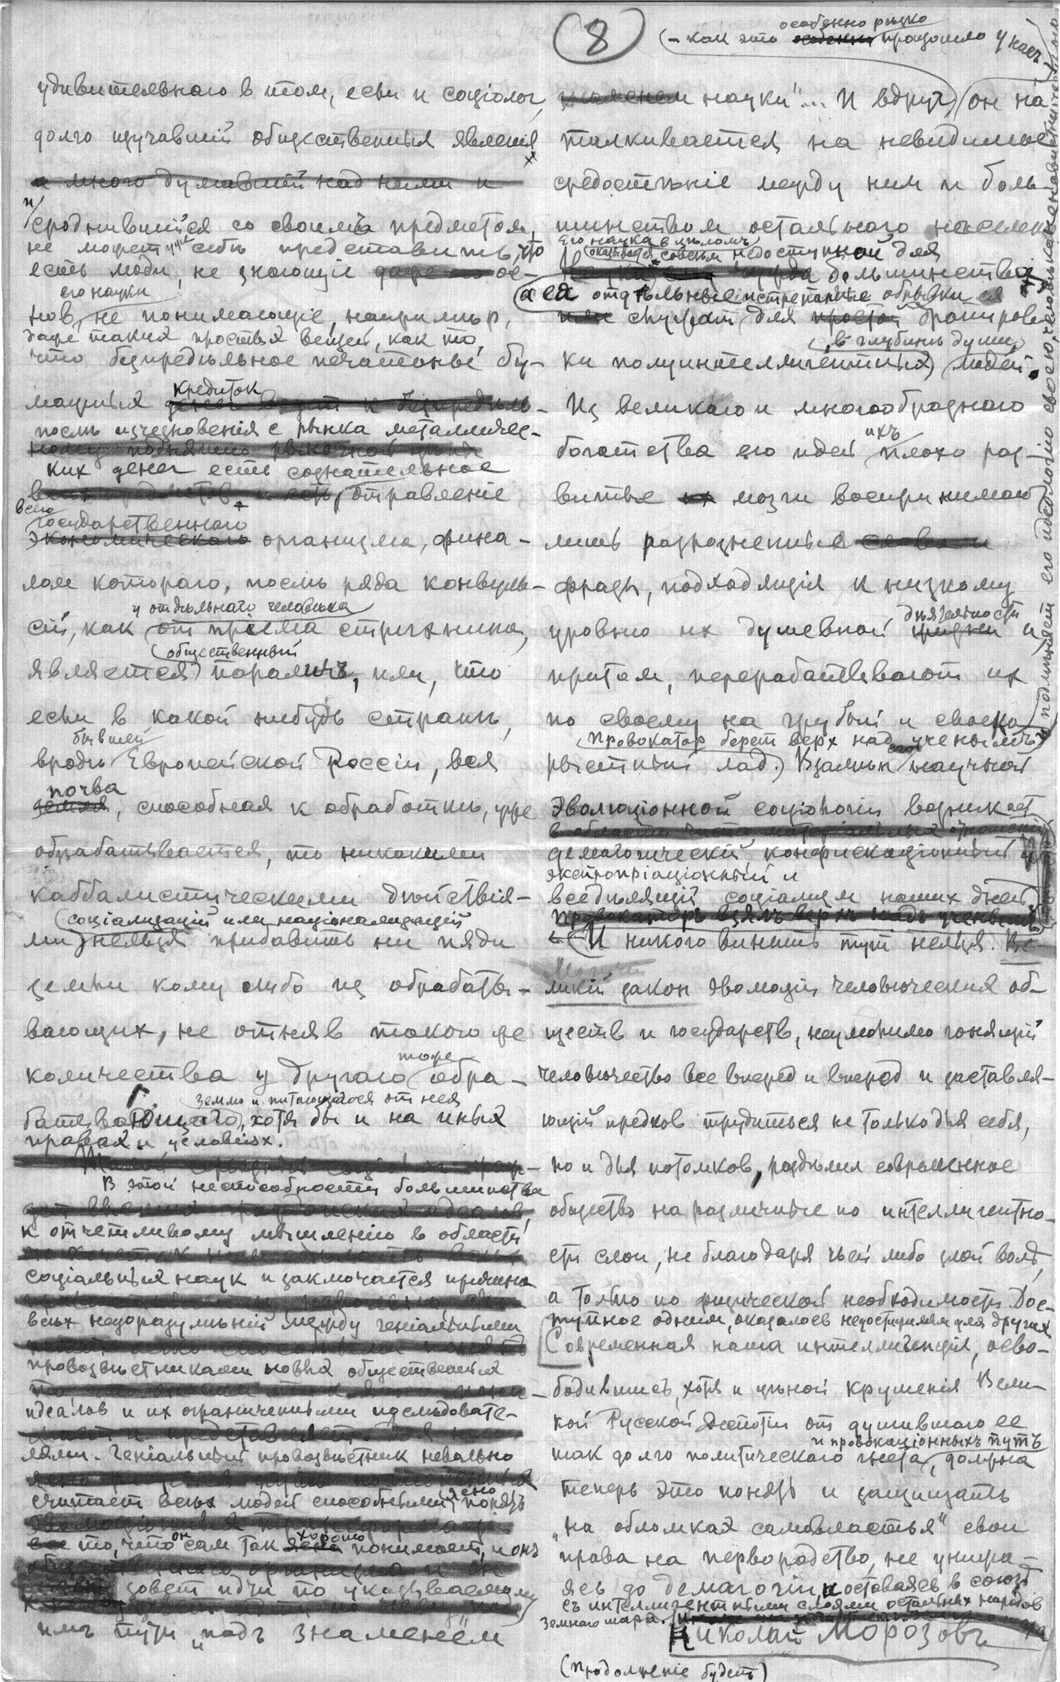 8
(– как это особенно рѣзко произошло у насъ
удивительнаго в том, если и соціолог,
долго изучавшій общественныя явленія
и сроднившійся со своимъ предметом,
не может уже себѣ представить, что
есть люди, не знающіе даже ос-
его науки
нов, не понимающіе, например,
даже таких простых вещей, как то,
что безпредѣльное печатанье бу-
мажных кредиток
послѣ изчезновенія с рынка металличес-
ких денег есть сознательное
отравленіе
всего государственнаго
организма, фина-
лом котораго, послѣ ряда конвуль-
у отдѣльнаго человѣка
сій, как от пріема стрихнина,
общественный
является параличъ, или, что
если в какой нибудь странѣ,
бывшей
вродѣ Европейской Россіи, вся
почва
способная к обработкѣ, уже
обрабатывается, то никакими
каббалистическими дѣйствія-
соціализацій или націонализацій
ми нельзя прибавить ни пяди
земли кому либо из обрабаты-
вающих, не отняв такого же
количества у другаго тоже обра-
землю и питающагося от нея
батывающаго, хотя бы и на иных
правах и условіях.
В этой неспособности большинства
к отчетливому мышленію в области
соціальных наук и заключается причина
всѣх недоразумѣній между геніальными
провозвѣстниками новых общественных
идеалов и их ограниченными послѣдовате-
лями. Геніальный провозвѣстник невольно
считает всѣх людей способными ясно понять
то, что он сам так хорошо понимает, и онъ
зовет идти по указываемому
имъ пути „подъ знаменем
науки"... И вдруг он на-
талкивается на невидимое
средостѣніе между ним и боль-
шинством остальнаго населенія
Его наука в цѣломъ
оказывается совсѣм недоступной для
большинства
а ея отдѣльные истрепанные обрывки
служат для бравировки
в глубинѣ души
полуинтеллигентных людей.
Из великаго и многообразнаго
богатства его идей ихъ плохо раз-
витые мозги воспринимают
лишь разрозненныя
фразы, подходящія к низкому
уровню их душевной дѣятельности и,
притом, перерабатывают их
по своему на грубый и своеко-
Провокатор берет верх над ученымъ
рыстный лад. Взамѣн научной
эволюціонной соціологіи возникает
демагогическій, конфискаціонный и
экспропріаціонный и
вседѣлящій соціализм наших дней
И никого винить тут нельзя. Ве-
ликій закон эволюціи человѣческих об-
ществ и государств, неумолимо гонящій
человѣчество все вперед и вперед и заставля-
ющій предков трудиться не только для себя,
но и для потомков, раздѣлил современное
общество на различные по интеллигентно-
сти слои, не благодаря чьей либо злой волѣ,
а только по физической необходимости. Дос-
тупное одним, оказалось недоступным для других
Современная наша интеллигенція, осво-
бодившись, хотя и цѣной крушенія Вели-
кой Русской Деспотіи от душившаго ее
и провокаціонныхъ путъ
так долго политическаго гнета, должна
теперь это понять и защищать
„на обломках самовластья" свои
права на первородство, не унижа-
ясь до демагогіи и оставаясь в союзѣ
съ интеллигентными слоями остальных народов
земнаго шара.
Николай Морозовъ
(Продолженіе будетъ)